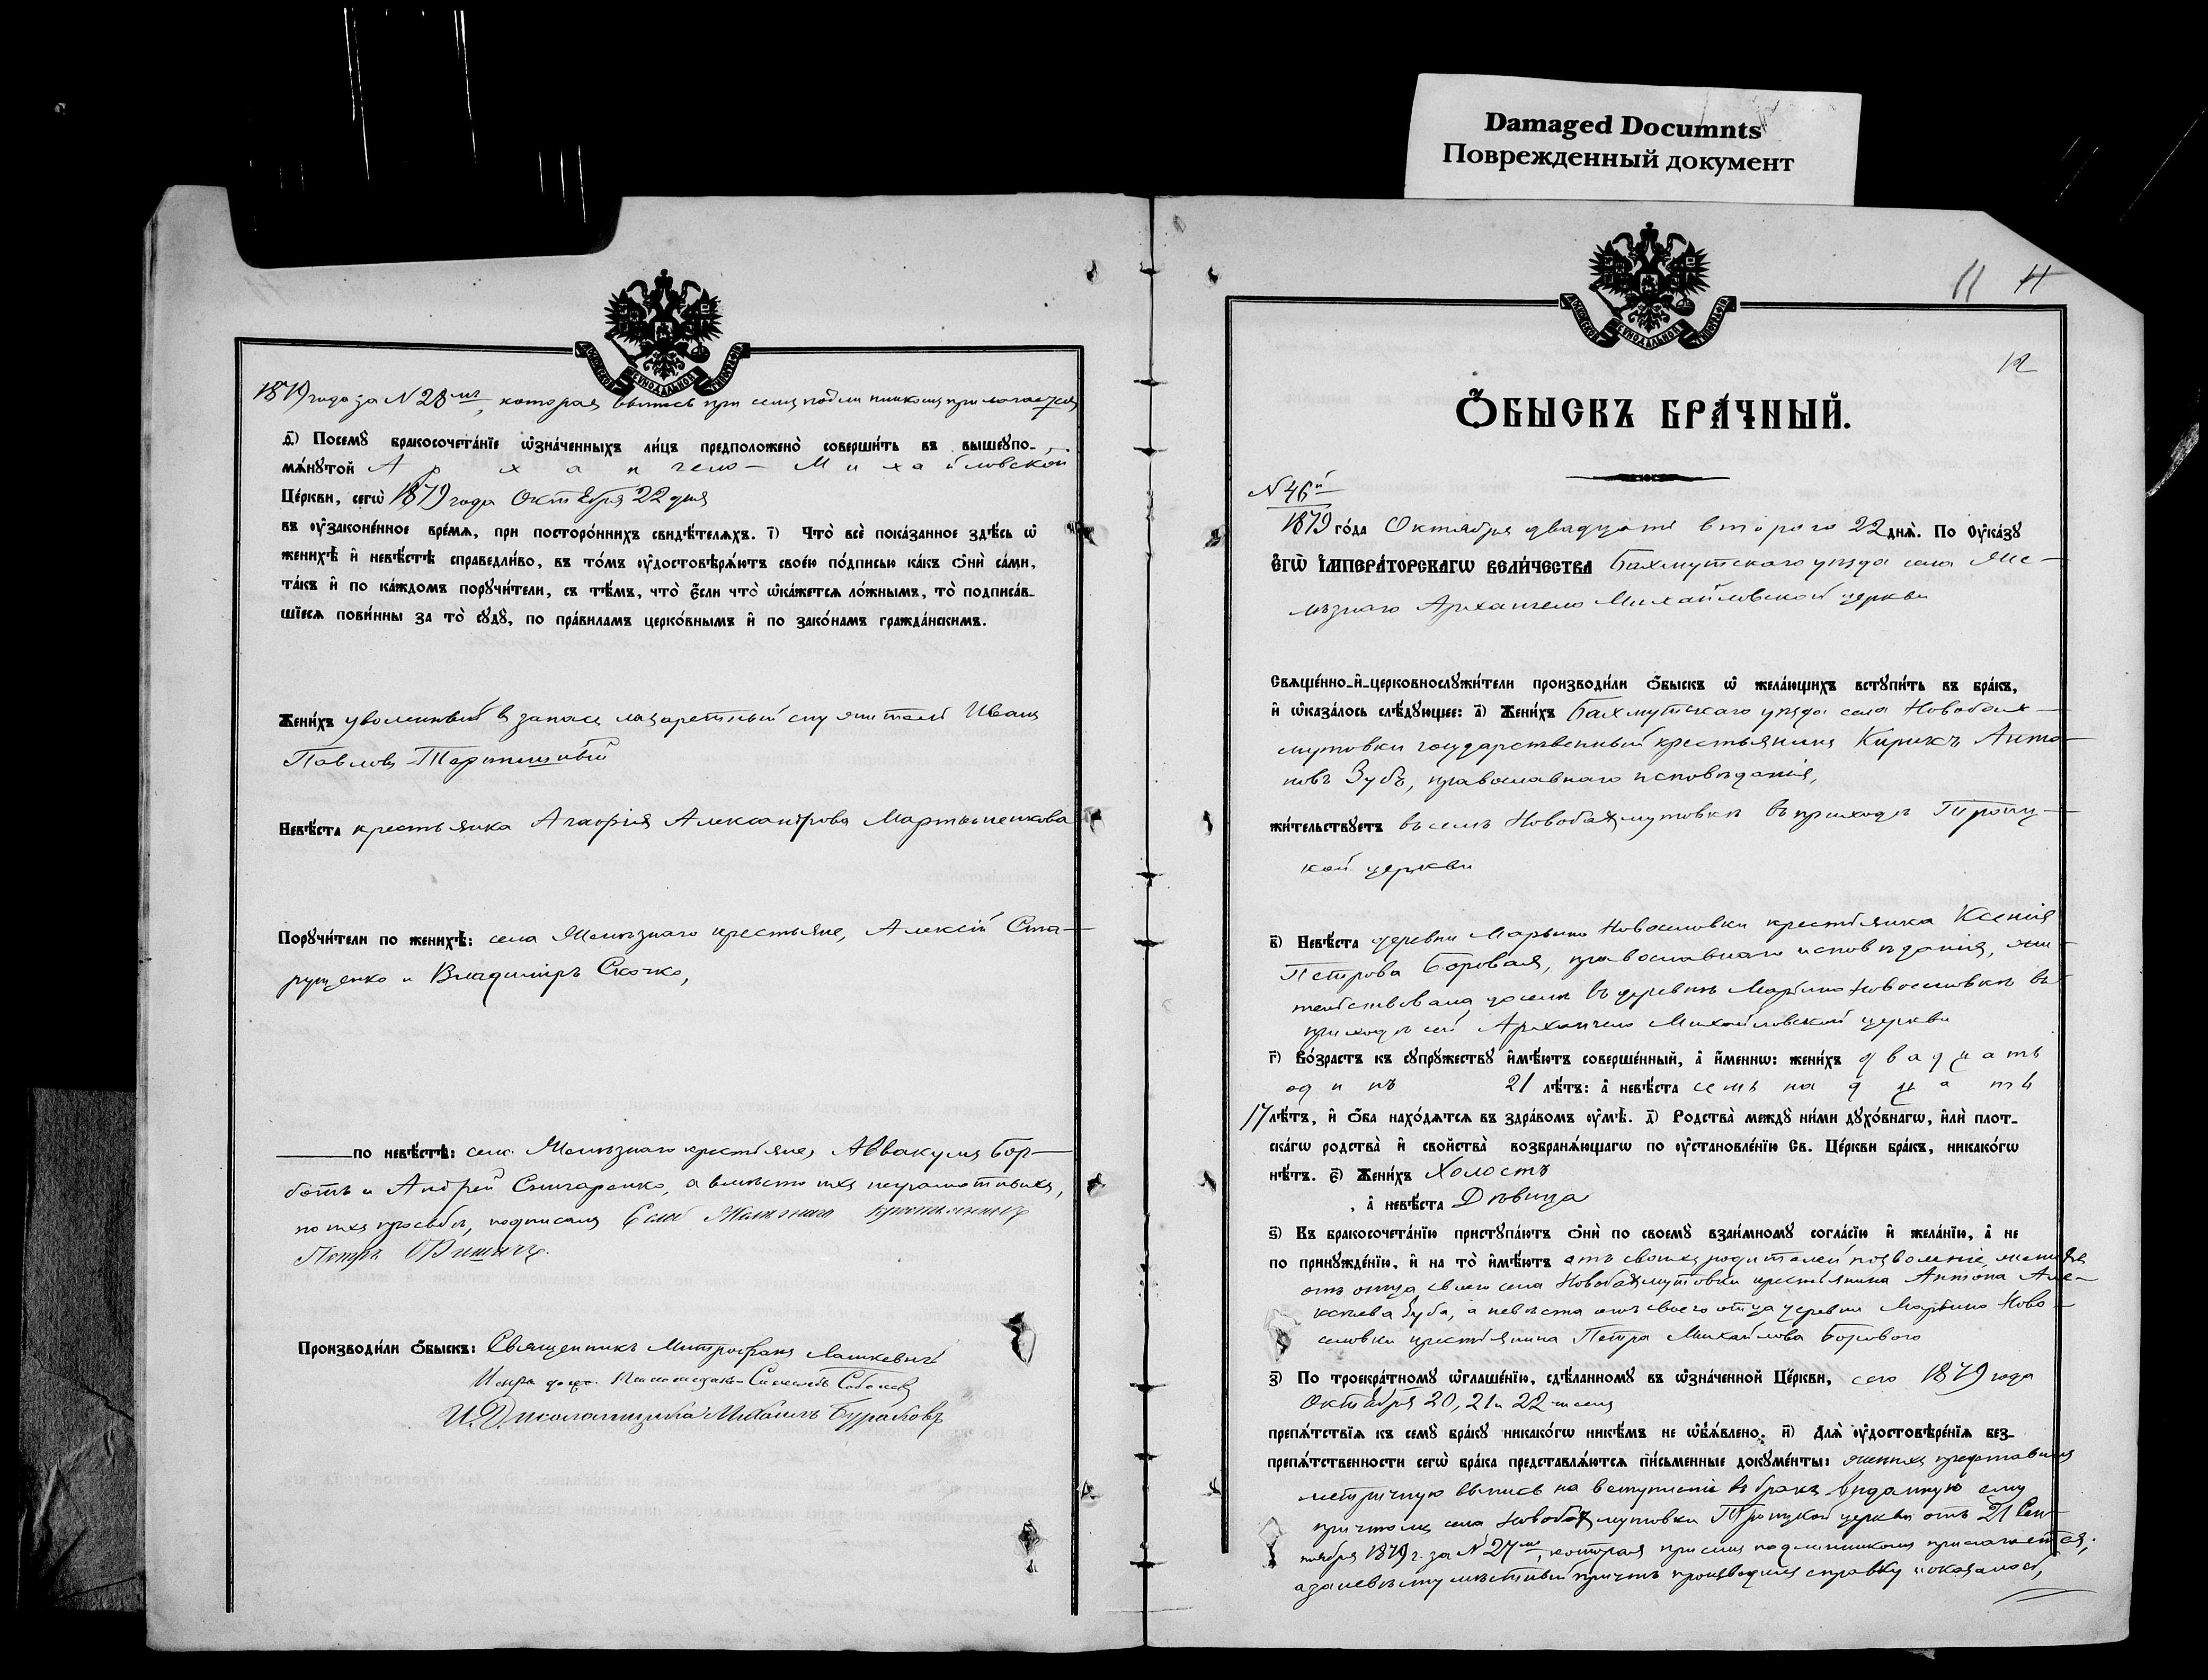 Damaged Documnts
Поврежденный документ
МОСКОВСКОЙ СѴНОДАЛЬНОЙ ТИПОГРАФІИ
1879 года за N 28мъ, которая выпись при семъ подлинникомъ прилагается
д҃і) Посемꙋ̀ бракосочета́нїе ѡ҆зна́ченныхъ ли́цъ предположено̀ соверши́ть въ вышеꙋпо-
мѧ́нꙋтой Архангело-Михайловской
Це́ркви, сегѡ̀ 1879 года Октября 22 дня
въ ᲂу҆законе́нное вре́мѧ, при посторо́ннихъ свидѣ́телѧхъ. і҃) Что̀ всѐ пока́занное здѣ́сь ѡ҆
женихѣ̀ и҆ невѣ́стѣ справедли́во, въ то́мъ ᲂу҆достовѣрѧ́ютъ свое́ю по́дписью ка́къ ѻ҆нѝ са́ми,
та́къ и҆ по ка́ждомъ порꙋчи́тели, съ тѣ́мъ, что̀ є҆́сли что̀ ѡ҆ка́жетсѧ ло́жнымъ, то̀ подписа́в-
шїесѧ пови́нны за то̀ сꙋдꙋ̀, по пра́виламъ церко́внымъ и҆ по зако́намъ гражда́нскимъ.
Жени́хъ уволенный въ запасъ лазаретный служитель Иванъ
Павловъ
Невѣ́ста крестьянка Агафія Александрова Мартыненкова
Порꙋчи́тели по женихѣ̀: села Желѣзнаго крестьяне, Алексій Ста-
рущенко и Владиміръ Скочко,
по невѣ́стѣ: села Желѣзнаго крестьяне, Аввакумъ Бор-
ботъ и Андрей Снигаренко, а вмѣсто ихъ неграмотныхъ,
по ихъ просьбѣ, подписалъ Села Желѣзнаго
Петръ
Производи́ли ѻ҆́быскъ: Священникъ Митрофанъ Лашкевичъ
Испр. долж. Псаломщика
И. Д. псаломщика Михаилъ Бураковъ
11
12
МОСКОВСКОЙ СѴНОДАЛЬНОЙ ТИПОГРАФІИ
Ѻ҆́БЫСКЪ БРА́ЧНЫЙ.
N 46й
1879 го́да Октября двадцать второго 22 днѧ̀. По Оу҆ка́зꙋ
Е҆гѡ̀ И҆МПЕРА́ТОРСКАГѠ ВЕЛИ́ЧЕСТВА Бахмутскаго уѣзда села Же-
лѣзнаго Архангело Михайловской церкви
Свѧще́нно-и҆-церковнослꙋжи́тели производи́ли ѻ҆́быскъ ѡ҆ жела́ющихъ встꙋпи́ть въ бра́къ,
и҆ ѡ҆каза́лось слѣ́дꙋющее: а҃) Жени́хъ Бахмутскаго уѣзда села Новобах-
мутовки государственный крестьянинъ Кирикъ Анто-
новъ Зубъ, православнаго исповѣданія,
жи́тельствꙋетъ въ селѣ Новобахмутовкѣ въ приходѣ Троиц-
кой церкви
в҃) Невѣ́ста деревни Марьино Новоселовки крестьянка Ксенія
Петрова Боровая, православнаго исповѣданія, жи-
тельствовала доселѣ въ деревнѣ Марьино Новоселовкѣ въ
приходѣ сей Архангело Михайловской церкви
г҃) Во́зрастъ къ сꙋпрꙋ́жествꙋ и҆мѣ́ютъ соверше́нный, а҆ и҆́меннѡ: жени́хъ двадцать
одинъ 21 лѣ́тъ: а҆ невѣ́ста семнадцать
17 лѣ́тъ, и҆ ѻ҆́ба нахо́дѧтсѧ въ здра́вомъ ᲂу҆мѣ̀. д҃) Родства̀ междꙋ̀ ни́ми дꙋхо́внагѡ, и҆лѝ плот-
ска́гѡ родства̀ и҆ свойства̀ возбранѧ́ющагѡ по ᲂу҆становле́нїю Св. Це́ркви бра́къ, никако́гѡ
нѣ́тъ. є҃) Жени́хъ Холостъ
, а҆ невѣ́ста Дѣвица
ѕ҃) Въ бракосочета́нїю пристꙋпа́ютъ ѻ҆нѝ по своемꙋ̀ взаи́мномꙋ согла́сїю и҆ жела́нїю, а҆ не
по принꙋжде́нїю, и҆ на то̀ и҆мѣ́ютъ отъ своихъ родителей позволеніе, женихъ
отъ отца своего села Новобахмутовки крестьянина Антона Але-
ксѣева Зуба, а невѣста отъ своего отца деревни Марьино Ново-
селовки крестьянина Петра Михайлова Борового
з҃) По троекра́тномꙋ ѡ҆глаше́нїю, сдѣ́ланномꙋ въ ѡ҆зна́ченной Це́ркви, сего 1879 года
Октября 20, 21 и 22 чиселъ
препѧ́тствїѧ къ семꙋ̀ бра́кꙋ никако́гѡ никѣ́мъ не ѡ҆б̾ѧ́влено. и҃) Длѧ̀ ᲂу҆достовѣре́нїѧ без-
препѧ́тственности сегѡ̀ бра́ка представлѧ́ютсѧ пи́сьменные докꙋме́нты: женихъ представилъ
метричную выпись на вступленіе въ бракъ выданную ему
причтомъ села Новобахмутовки Троицкой церкви отъ 21 Сен-
тября 1879 г. за N 27мъ, которая при семъ подлинникомъ прилагается;
а за невѣсту мѣстный причтъ производилъ справку и оказалось,